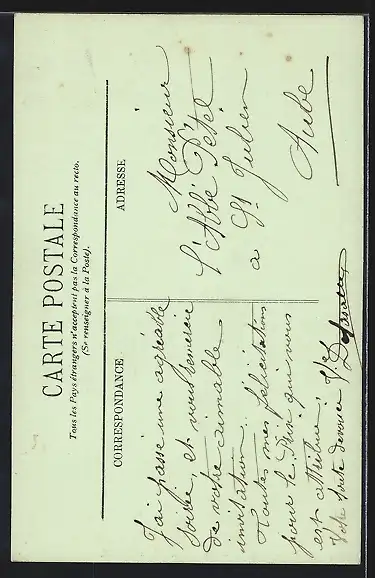 CARTE POSTALE
Tous les Pays étrangers n'acceptent pas la Correspondance au recto.
(Se renseigner à la Poste).
CORRESPONDANCE
ADRESSE
J'ai passé une agréable
soirée et vous remercie
de votre aimable
invitation.
Toutes mes félicitations
pour le Prix qui vous
est attribué,
Votre toute dévouée
Monsieur
l'Abbé Pétel
à St Julien
Aube